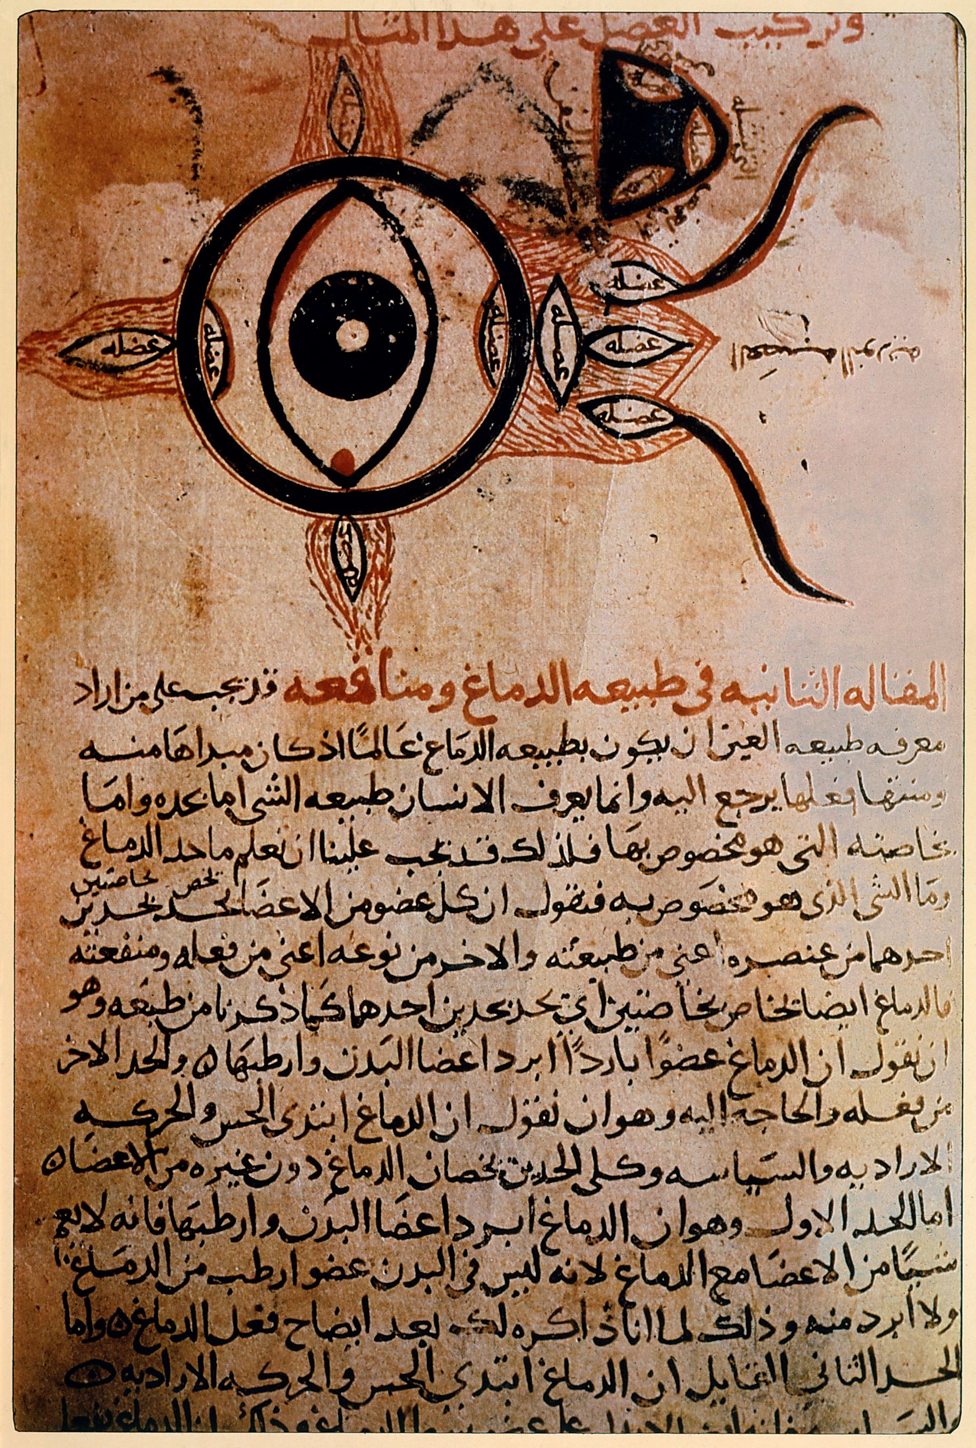 وتركيب العضل على هذا المثال
عضله
عضله
عضله
عضله
عضله
عضله
عضله
عضله
عضله
المقاله الثانيه في طبيعه الدماغ ومنافعه قد يجب على من اراد
معرفه طبيعه العين ان يكون بطبيعه الدماغ عالمًا اذ كان مبداها منه
ومنتها فعلها يرجع اليه وانما يعرف الانسان طبيعه الشي اما بحده واما
بخاصته التي هو مخصوص بها فلذلك قد يجب علينا ان نعلم ما حد الدماغ
وما الشي الذي هو مخصوص به فنقول ان كل عضو من الاعضا يحد بحدين
يخص خاصتين
احدهما من عنصره اعني من طبيعته والاخر من نوعه اعني من فعله ومنفعته
فالدماغ ايضا بخاصتين اي يحد بحدين احدهما كما ذكرنا من طبعه وهو
ان نقول ان الدماغ عضوًا باردًا ابرد اعضا البدن وارطبها ه والحد الاخر
من فعله والحاجه اليه وهو ان نقول ان الدماغ ابتدى الحس والحركه
الاراديه والسياسه وكلي الحدين يخصان الدماغ دون غيره من الاعضا ه
اما الحد الاول وهو ان الدماغ ابرد اعضا البدن وارطبها فانه لا يعم
شيًا من الاعضا مع الدماغ لانه ليس في البدن عضو ارطب من الدماغ
ولا ابرد منه وذلك لما انا ذاكره لك بعد ايضاح فعل الدماغ ه واما
الحد الثاني القايل ان الدماغ ابتدى الحس والحركه الاراديه ه